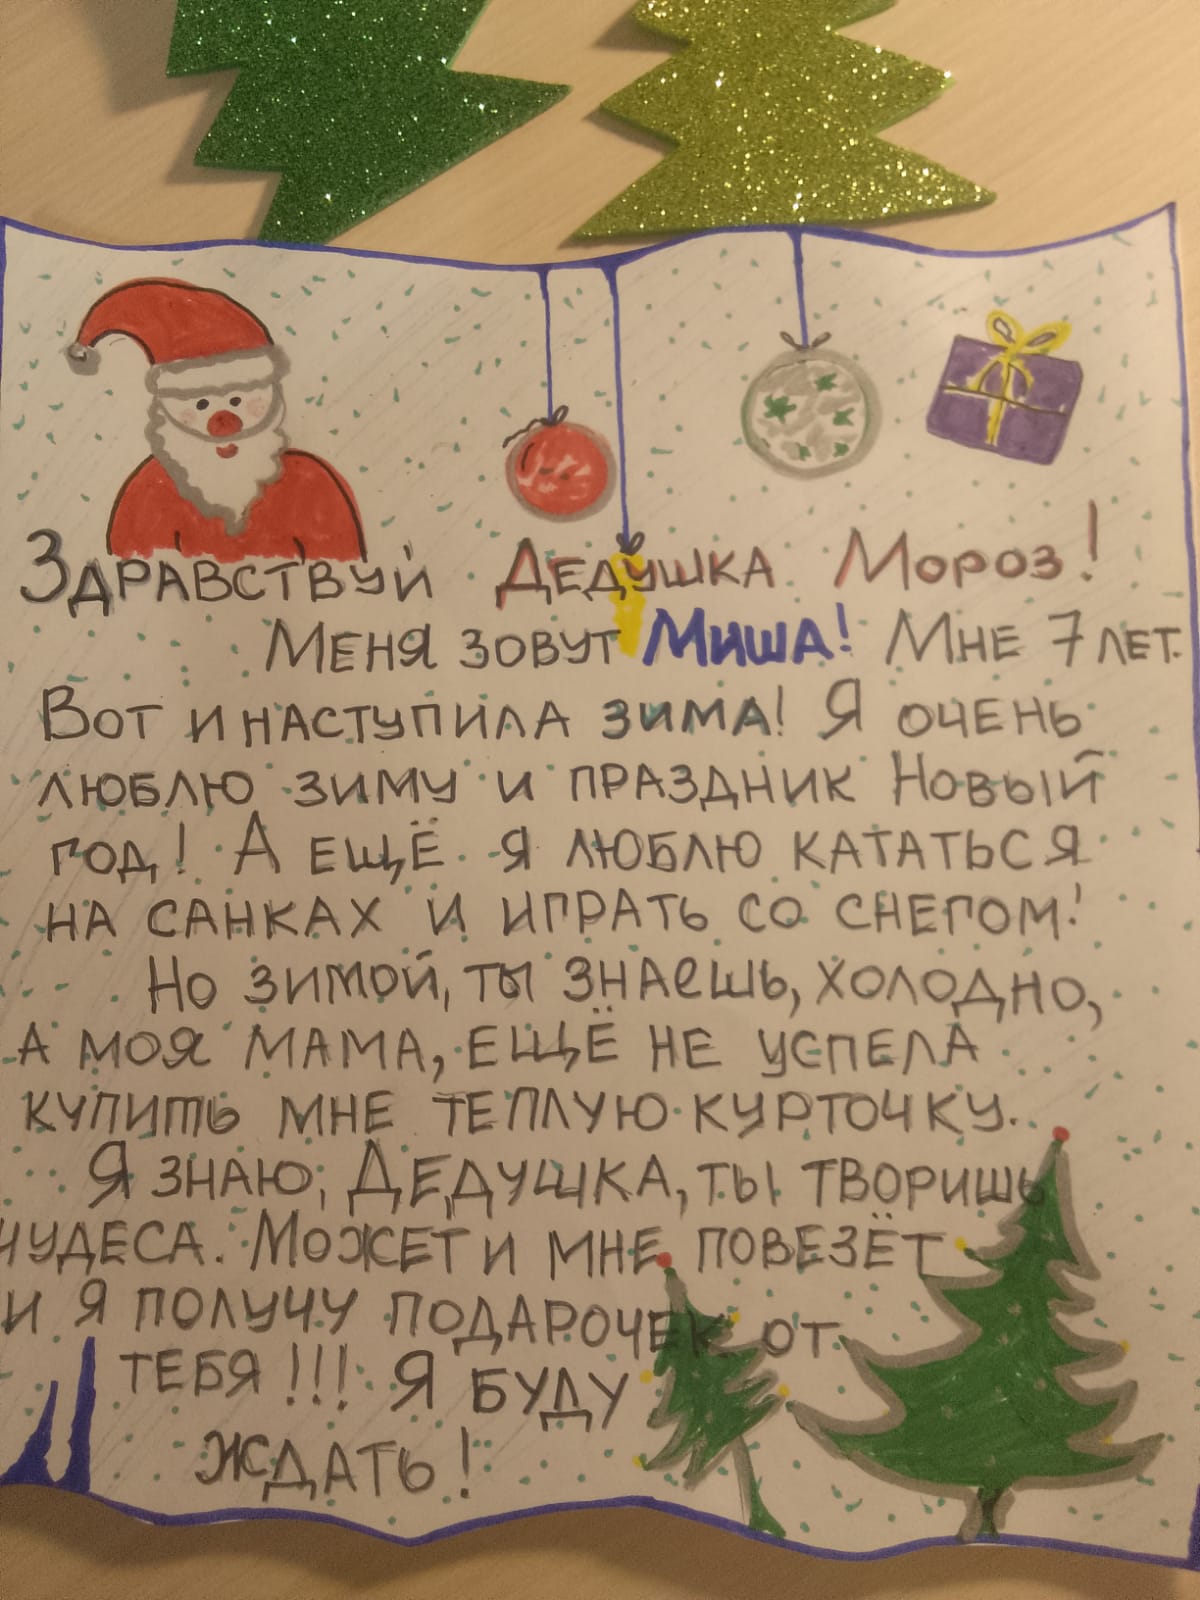 Здравствуй Дедушка Мороз!
Меня зовут Миша! Мне 7 лет.
Вот и наступила зима! Я очень
люблю зиму и праздник Новый
год! А ещё я люблю кататься
на санках и играть со снегом!
Но зимой, ты знаешь, холодно,
а моя мама, ещё не успела
купить мне теплую курточку.
Я знаю, Дедушка, ты творишь
чудеса. Может и мне повезёт
и я получу подарочек от
тебя!!! Я буду
ждать!